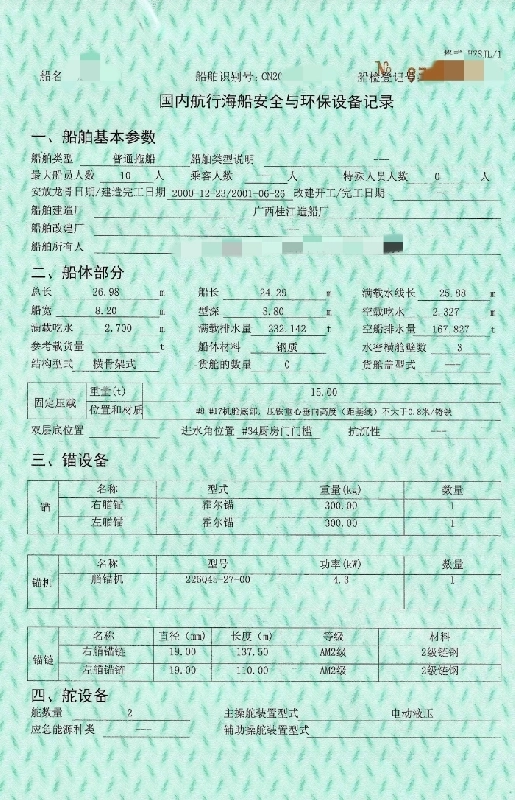 船名 船舶识别号: CN20 船检登记号
№
国内航行海船安全与环保设备记录
一、船舶基本参数
船舶类型 普通拖船 船舶类型说明 ---
最大船员人数 10 人 乘客人数 人 特殊人员人数 0 人
安放龙骨日期/建造完工日期 2000-12-23/2001-06-26 改建开工/完工日期
船舶建造厂 广西桂江造船厂
船舶改建厂 ---
船舶所有人
二、船体部分
总长 26.98 m 船长 24.29 m 满载水线长 m
船宽 8.20 m 型深 3.80 m 空载吃水 2.327 m
满载吃水 2.700 m 满载排水量 232.142 t 空船排水量 167.827 t
参考载货量 t 船体材料 钢质 水密横舱壁数 3
结构型式 横骨架式 货舱的数量 0 货舱盖型式 ---
固定压载 重量(t) 15.00
位置和材质 #8 #17机舱底部，压铁重心垂向高度（距基线）不大于0.8米/铸铁
双层底位置 进水角位置 #34厨房门门槛 抗沉性 ---
三、锚设备
锚 名称 型式 重量(kg) 数量
右艏锚 霍尔锚 300.00 1
左艏锚 霍尔锚 300.00 1
锚机 名称 型号 功率(kW) 数量
艏锚机 4.3 1
锚链 名称 直径 (mm) 长度 (m) 等级 材料
右艏锚链 19.00 137.50 AM2级 2级链钢
左艏锚链 19.00 110.00 AM2级 2级链钢
四、舵设备
舵数量 2 主操舵装置型式 电动液压
应急能源种类 --- 辅助操舵装置型式